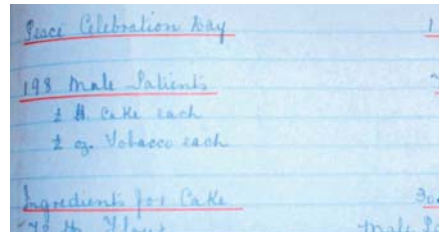 Peace Celebration Day 1
198 Male Patients
½ lb Cake each
½ oz. Tobacco each
Ingredients for Cake 30
Flour Male